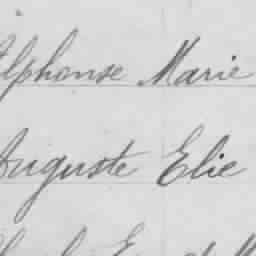 Alphonse Marie
Auguste Elie